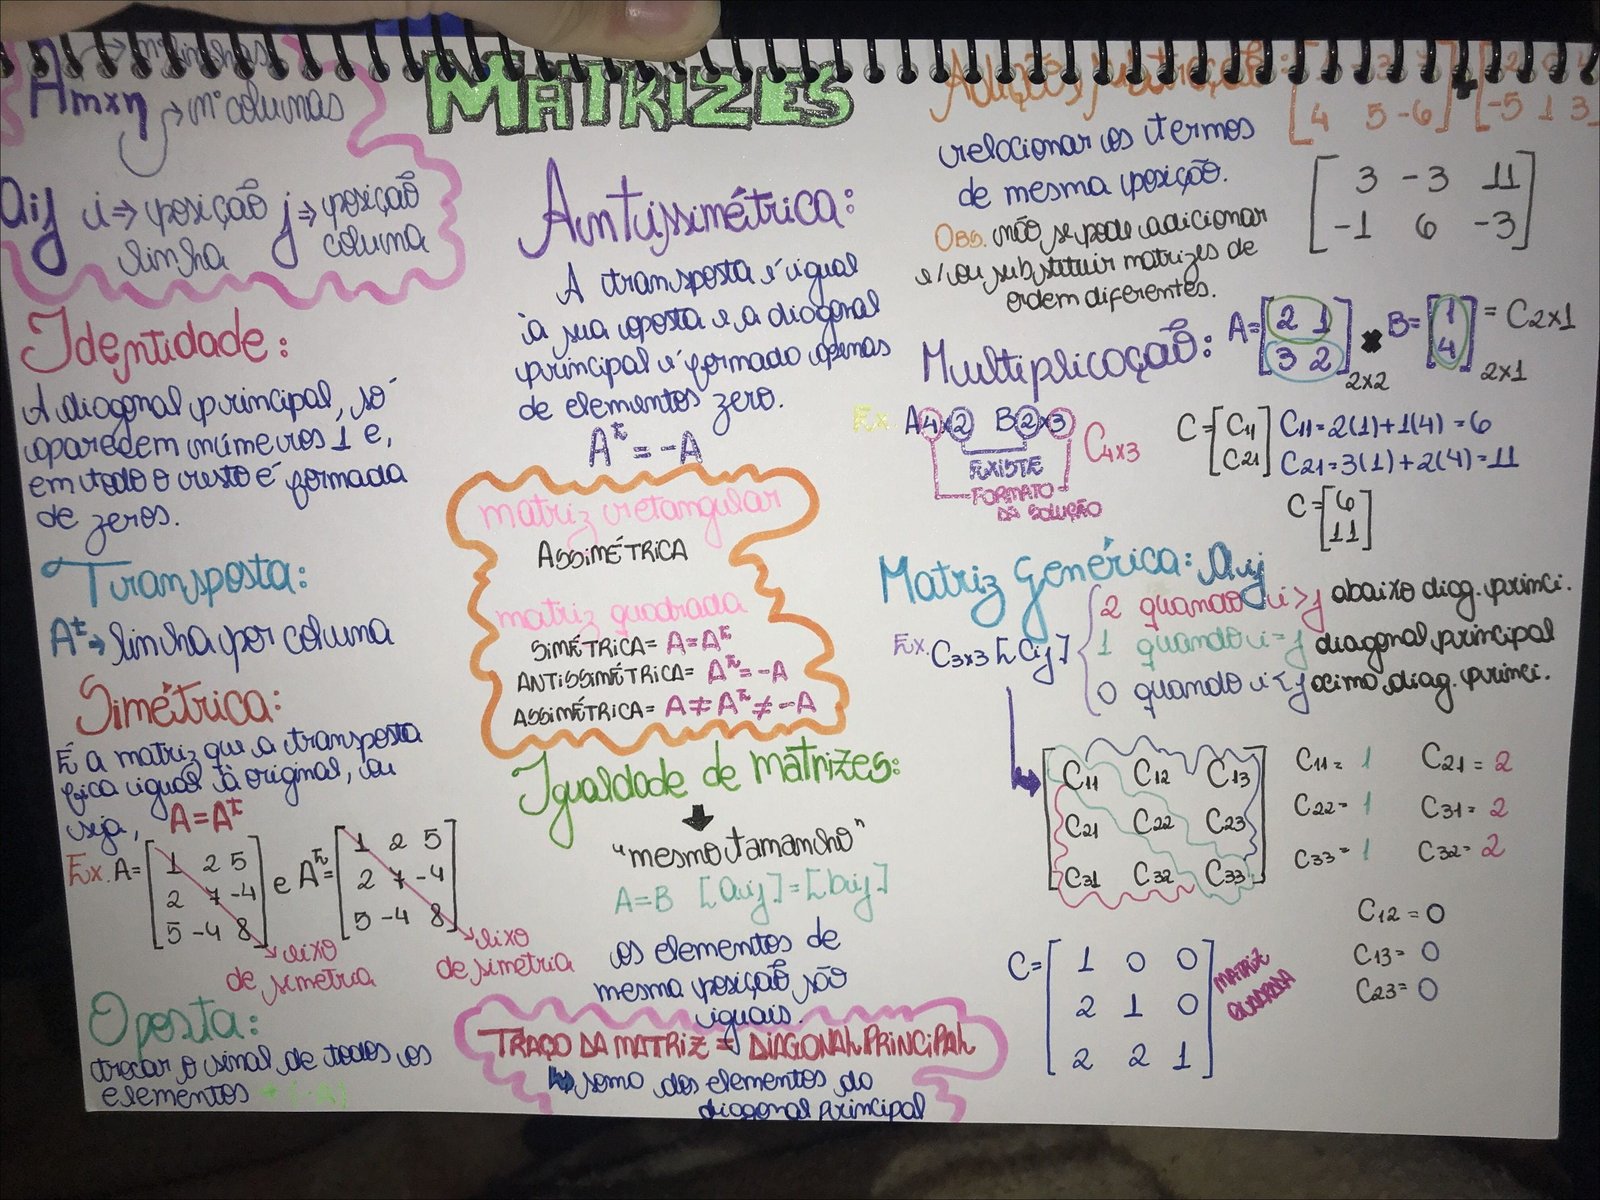 MATRIZES
nº linhas
Amxn → nº colunas
aij i ⇒ posição linha j ⇒ posição coluna
Identidade:
A diagonal principal, só
aparecem números 1 e,
em todo o resto é formada
de zeros.
Transposta:
Aᵗ → linha por coluna
Simétrica:
É a matriz que a transposta
fica igual à original, ou
seja, A=Aᵗ
Ex. A= [1 2 5] e Aᵗ= [1 2 5]
[2 7 -4] [2 7 -4]
[5 -4 8] [5 -4 8]
eixo de simetria
eixo de simetria
Oposta:
trocar o sinal de todos os
elementos → (-A)
Antissimétrica:
A transposta é igual
à sua oposta e a diagonal
principal é formado apenas
de elementos zero.
Aᵗ = -A
matriz retangular
ASSIMÉTRICA
matriz quadrada
SIMÉTRICA= A=Aᵗ
ANTISSIMÉTRICA= Aᵗ=-A
ASSIMÉTRICA= A≠Aᵗ≠-A
Igualdade de matrizes:
"mesmo tamanho"
A=B [aij]=[bij]
os elementos de
mesma posição são
iguais.
TRAÇO DA MATRIZ = DIAGONAL PRINCIPAL
↳ soma dos elementos da
diagonal principal
4 5 -6 + -5 1 3
relacionar os termos
de mesma posição.
Obs. não se pode adicionar
e/ou substituir matrizes de
ordem diferentes.
[3 -3 11]
[-1 6 -3]
Multiplicação: A= [2 1] × B= [1] = C2x1
[3 2] 2x2 [4] 2x1
Ex. A4x2 B2x3 C4x3
EXISTE
FORMATO
DA SOLUÇÃO
C= [C11] C11=2(1)+1(4)=6
[C21] C21=3(1)+2(4)=11
C= [6]
[11]
Matriz Genérica: aij
Ex. C3x3 [Cij]
2 quando i>j abaixo diag. princi.
1 quando i=j diagonal principal
0 quando i<j acima diag. princi.
C11 C12 C13
C21 C22 C23
C31 C32 C33
C11= 1 C21= 2
C22= 1 C31= 2
C33= 1 C32= 2
C12 = 0
C13= 0
C23= 0
C= [1 0 0]
[2 1 0]
[2 2 1]
MATRIZ
QUADRADA